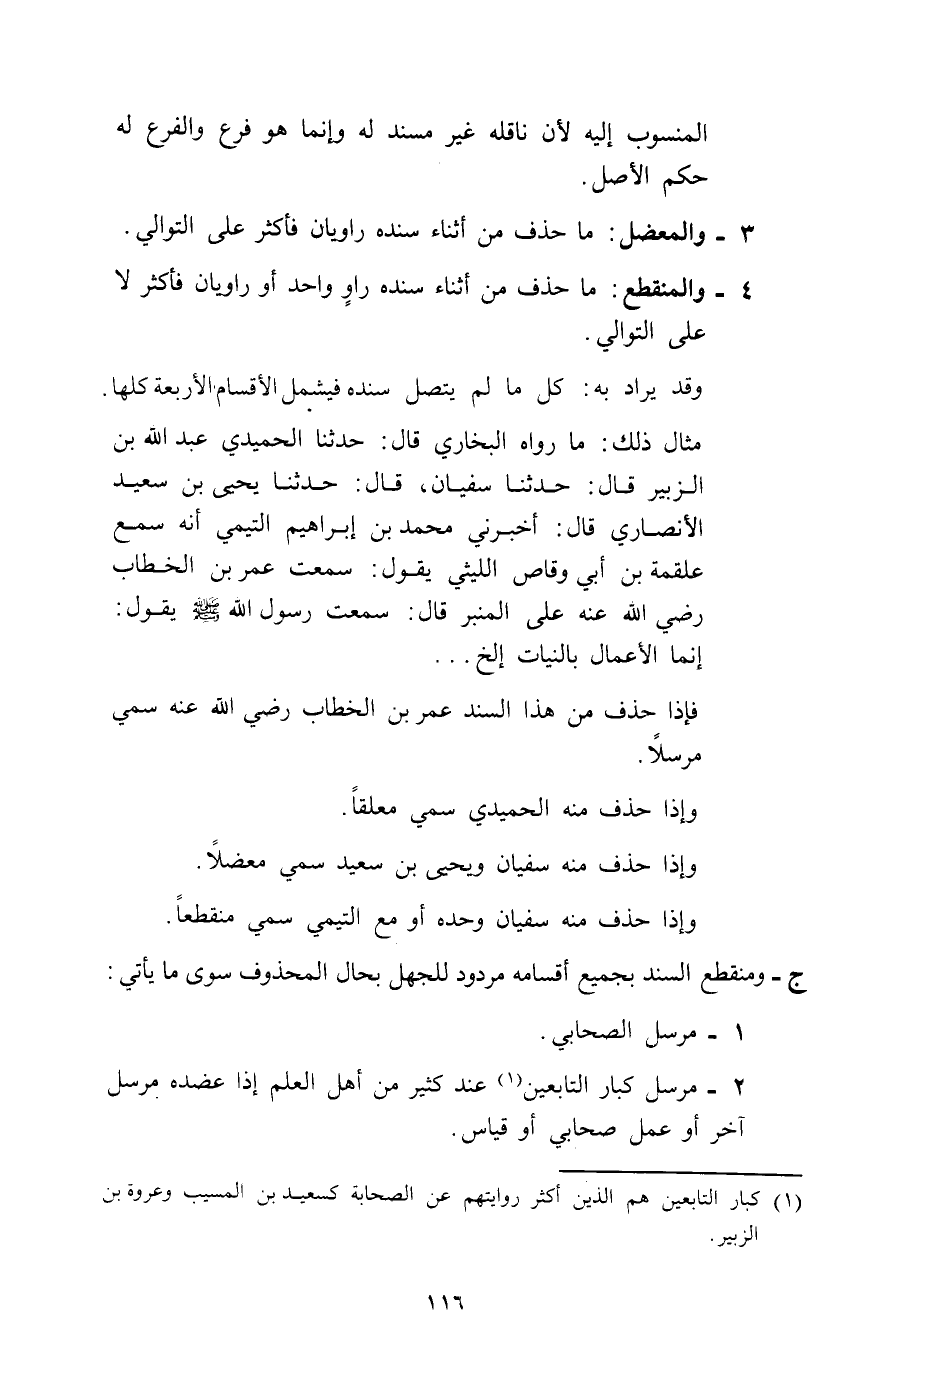 المنسوب إليه لأن ناقله غير مسند له وإنما هو فرع والفرع له
حكم الأصل.
٣ - والمعضل: ما حذف من أثناء سنده راويان فأكثر على التوالي.
٤ - والمنقطع: ما حذف من أثناء سنده راوٍ واحد أو راويان فأكثر لا
على التوالي.
وقد يراد به: كل ما لم يتصل سنده فيشمل الأقسام الأربعة كلها.
مثال ذلك: ما رواه البخاري قال: حدثنا الحميدي عبد الله بن
الزبير قال: حدثنا سفيان، قال: حدثنا يحيى بن سعيد
الأنصاري قال: أخبرني محمد بن إبراهيم التيمي أنه سمع
علقمة بن أبي وقاص الليثي يقول: سمعت عمر بن الخطاب
رضي الله عنه على المنبر قال: سمعت رسول الله ﷺ يقول:
إنما الأعمال بالنيات إلخ...
فإذا حذف من هذا السند عمر بن الخطاب رضي الله عنه سمي
مرسلاً.
وإذا حذف منه الحميدي سمي معلقاً.
وإذا حذف منه سفيان ويحيى بن سعيد سمي معضلاً.
وإذا حذف منه سفيان وحده أو مع التيمي سمي منقطعاً.
ج - ومنقطع السند بجميع أقسامه مردود للجهل بحال المحذوف سوى ما يأتي:
١ - مرسل الصحابي.
٢ - مرسل كبار التابعين(١) عند كثير من أهل العلم إذا عضده مرسل
آخر أو عمل صحابي أو قياس.
(١) كبار التابعين هم الذين أكثر روايتهم عن الصحابة كسعيد بن المسيب وعروة بن
الزبير.
١١٦